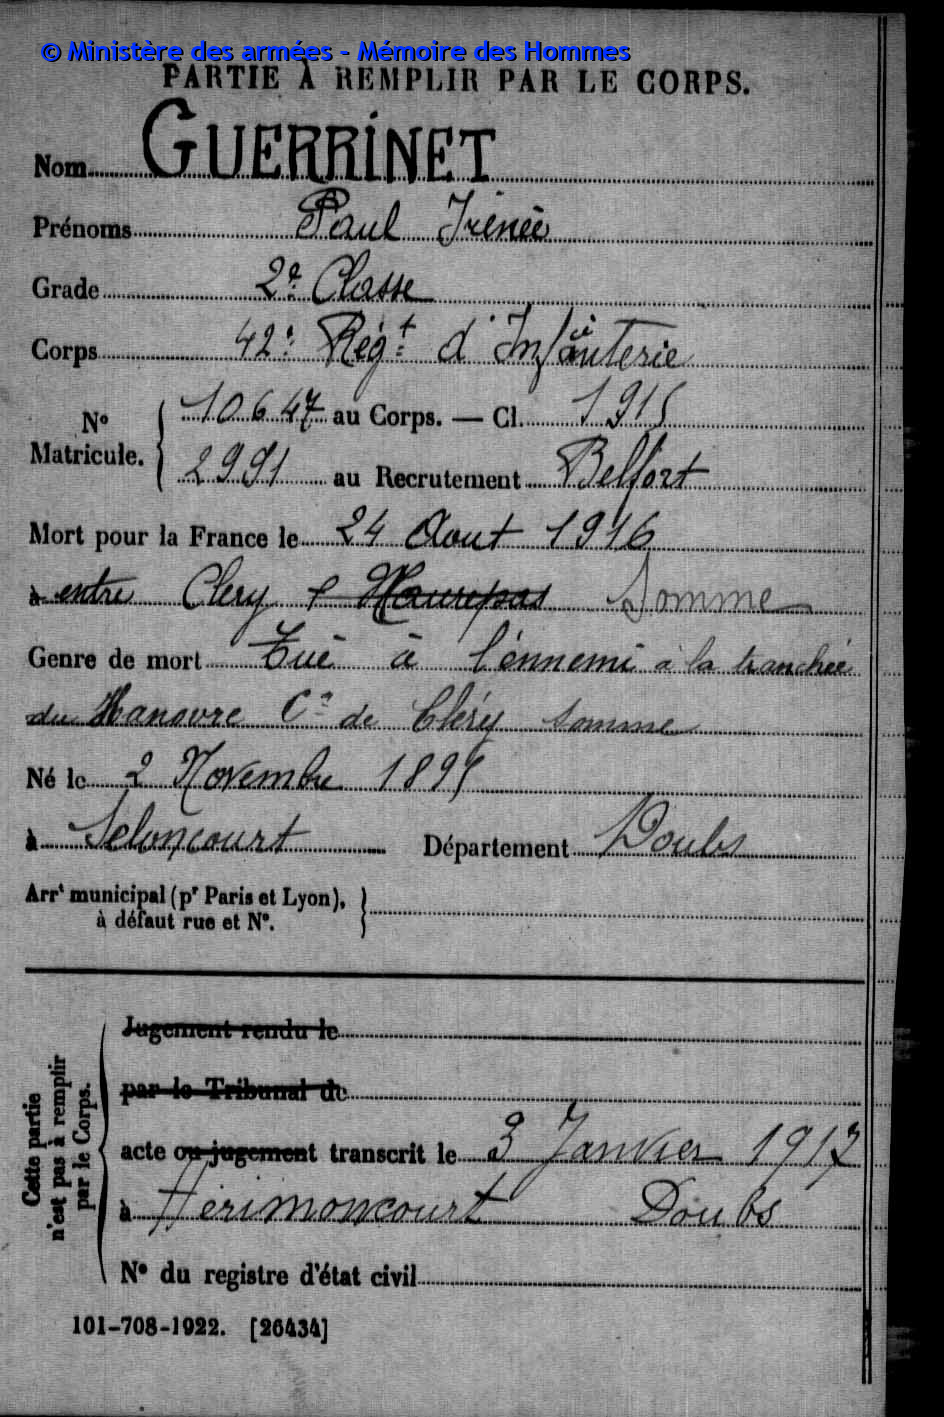 © Ministère des armées - Mémoire des Hommes
PARTIE À REMPLIR PAR LE CORPS.
Nom GUERRINET
Prénoms Paul Irénée
Grade 2e Classe
Corps 42e Régt d'Infanterie
No Matricule. 10647 au Corps. — Cl. 1915
2991 au Recrutement Belfort
Mort pour la France le 24 Aout 1916
à entre Clery & Maurepas Somme
Genre de mort Tué à l'ennemi à la tranchée
du Hanovre Cne de Cléry Somme
Né le 2 Novembre 1895
à Seloncourt Département Doubs
Arrt municipal (pr Paris et Lyon),
à défaut rue et No.
Cette partie
n'est pas à remplir
par le Corps.
Jugement rendu le
par le Tribunal de
acte ou jugement transcrit le 3 Janvier 1917
à Hérimoncourt Doubs
No du registre d'état civil
101-708-1922. [26434]